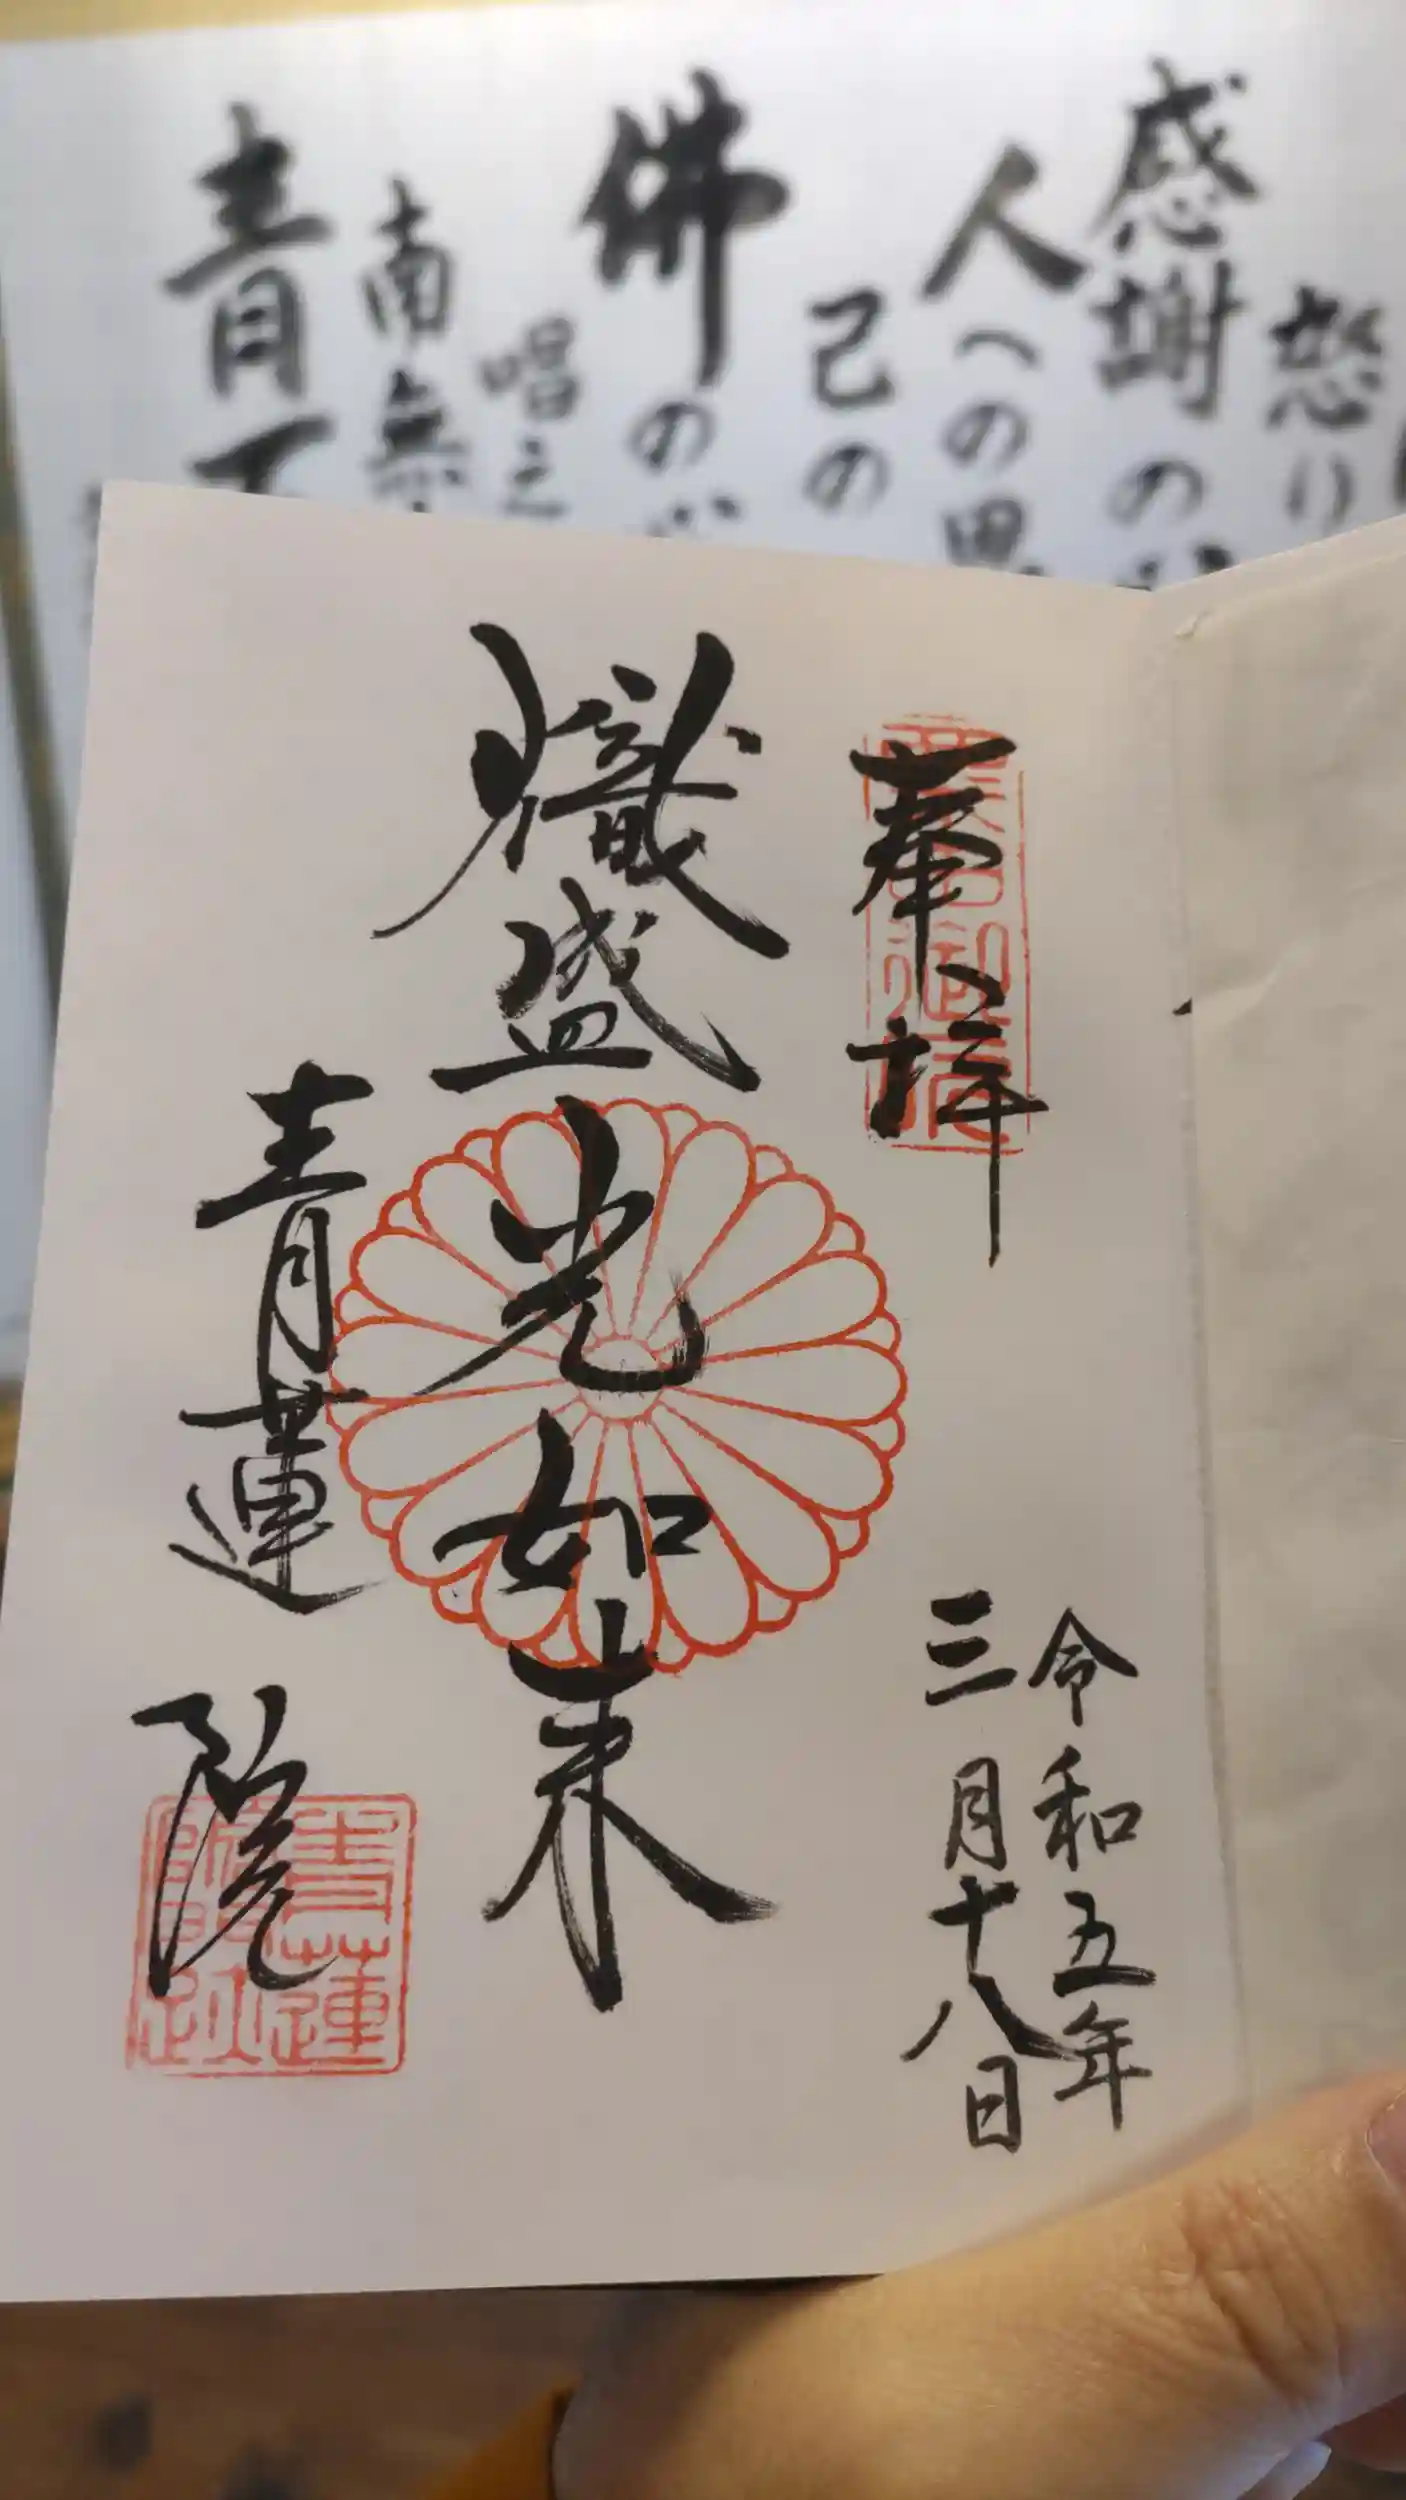 怒り
感謝の
人への思
己の
佛の心
唱え
南無
青
奉拝
令和五年
三月十八日
熾盛光如来
青蓮院
青蓮